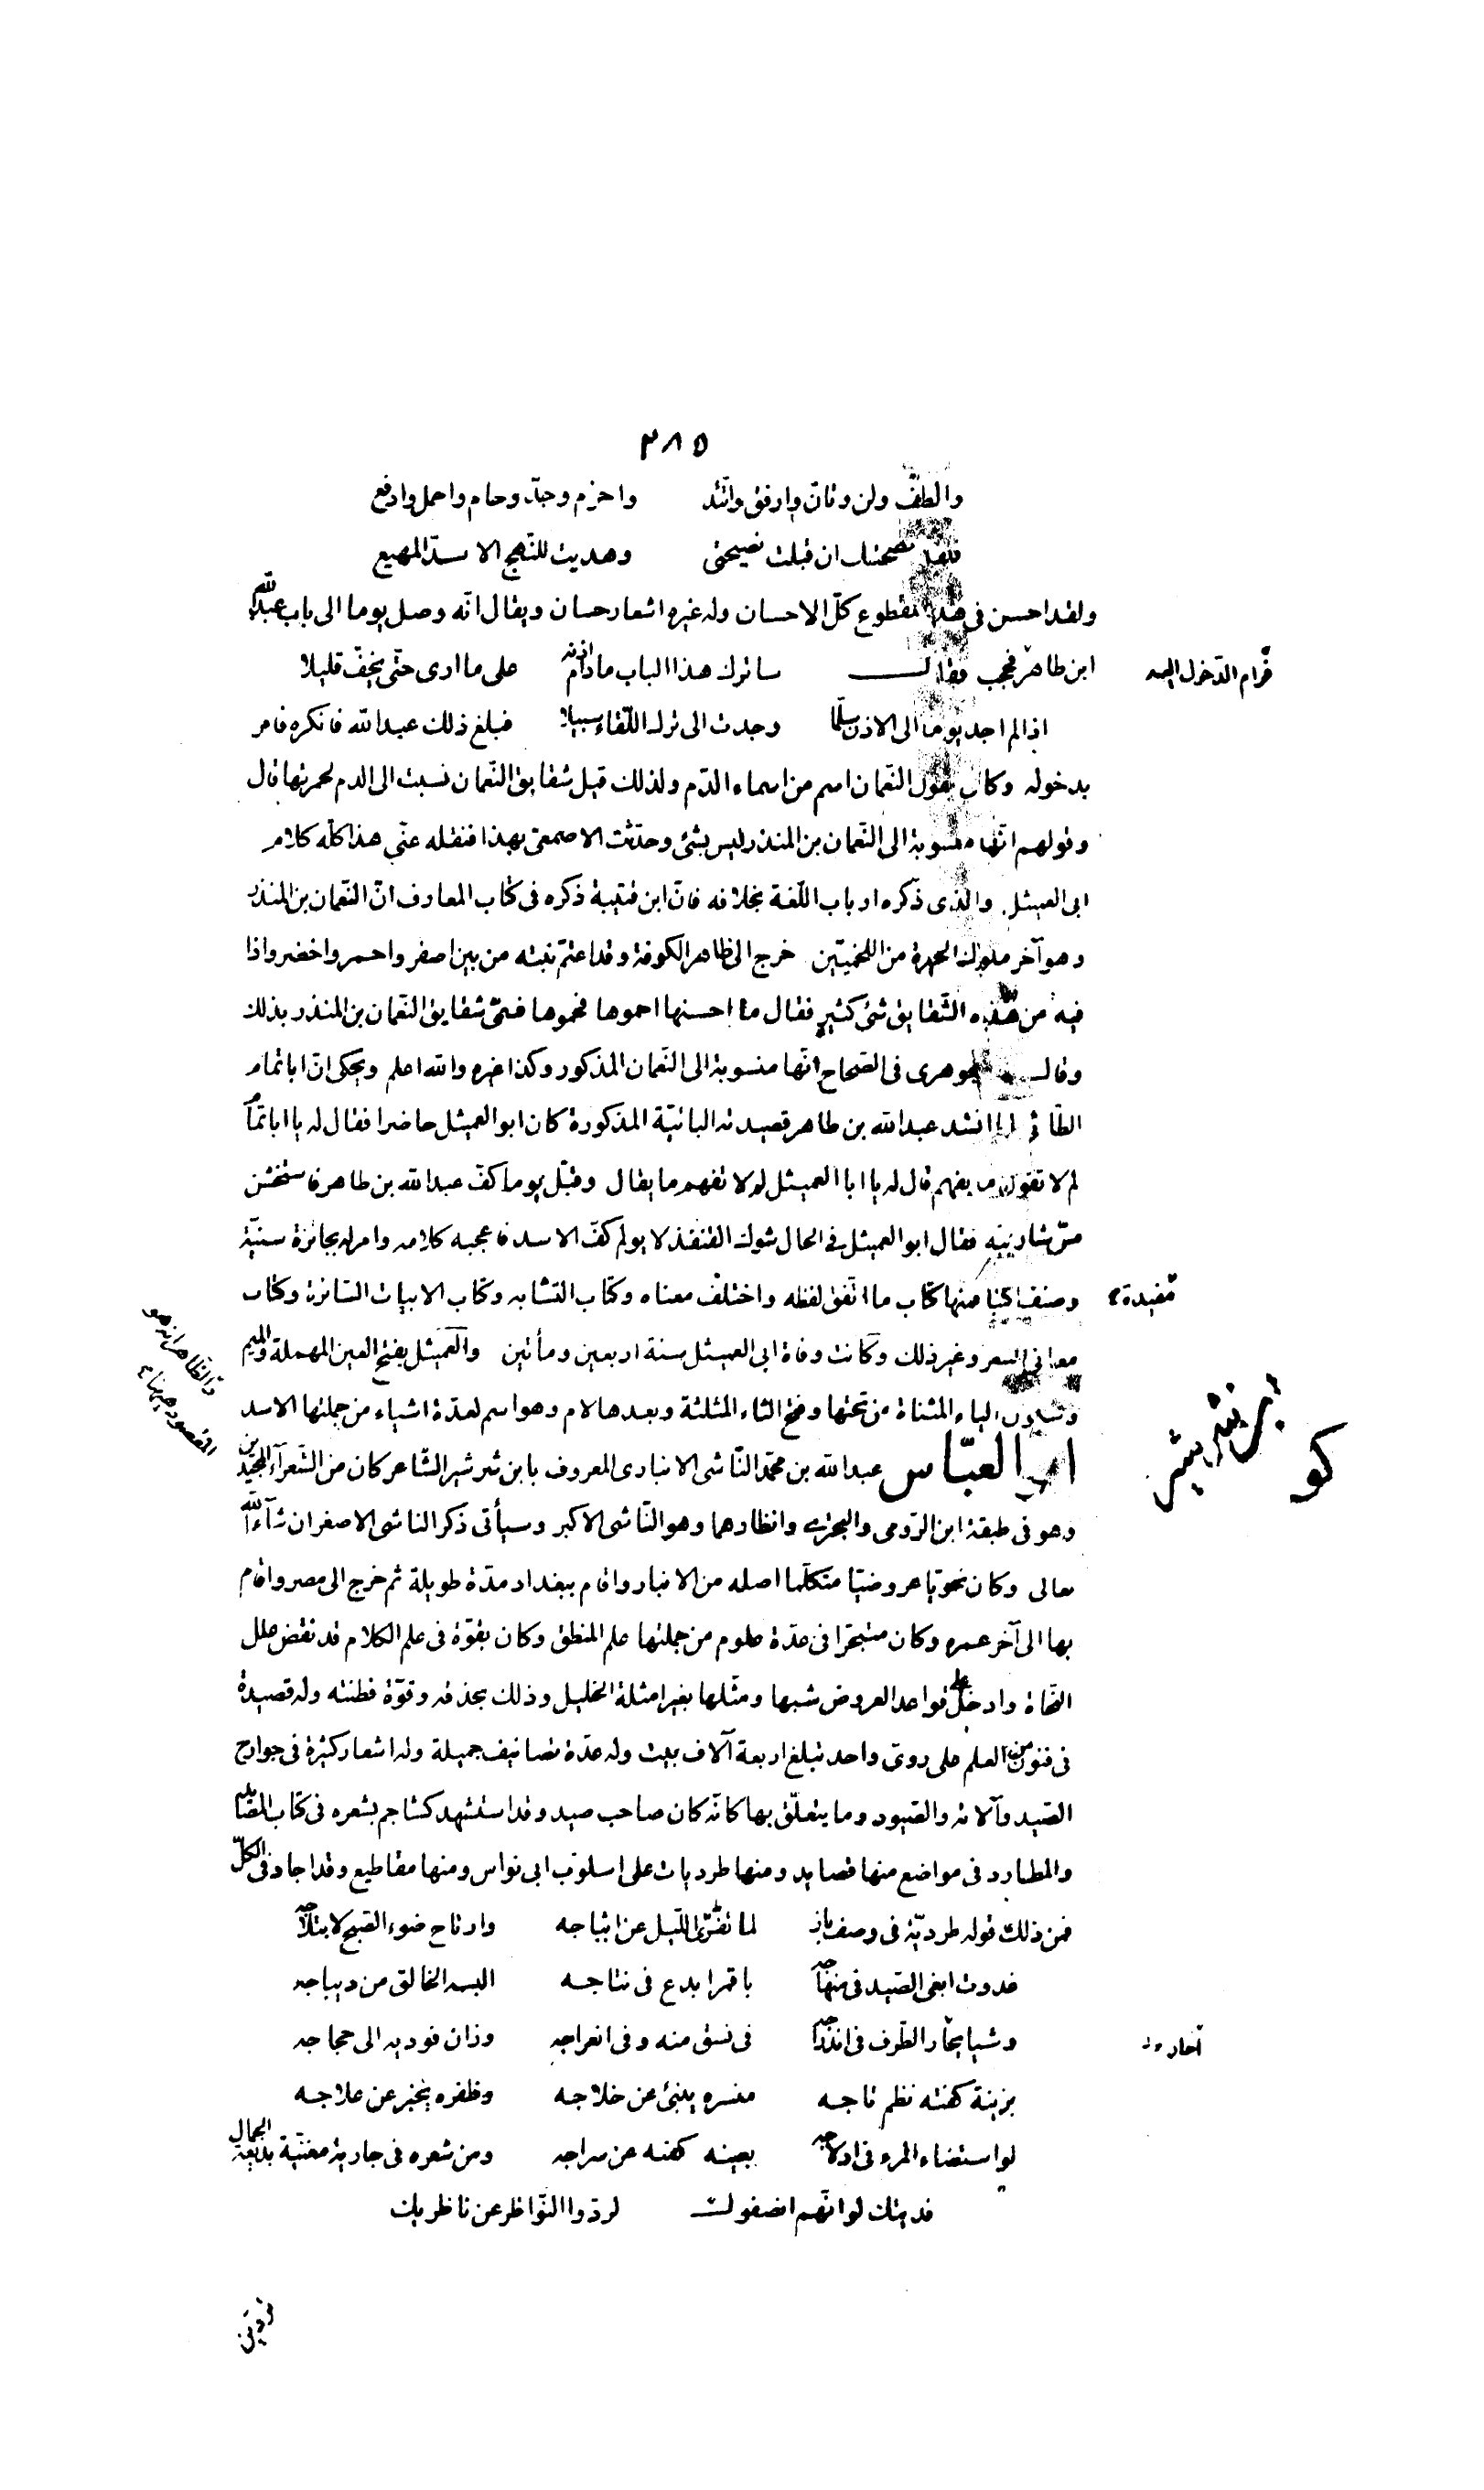 ٢٨٥
والطف ولن وتانّ وارفق واتّئد واحزم وجدّ وحام واحمل وادفع
فلقد نصحتك ان قبلت نصيحتى وهديت للنهج الاسدّ المهيع
ولقد احسن فى هذا المقطوع كلّ الاحسان وله غيره اشعار حسان ويقال انّه وصل يوما الى باب عبدالله
ابن طاهر فحجب فقال ساترك هذا الباب مادام اذنه على ما ارى حتّى يخفّ قليلا
فرام الدّخول اليه
اذا لم اجد يوما الى الاذن سلّما وجدت الى ترك اللّقاء سبيلا فبلغ ذلك عبدالله فانكره فامر
بدخوله وكان يقول النّعمان اسم من اسماء الدّم ولذلك قيل شقايق النّعمان نسبت الى الدم لحمرتها قال
وقولهم انّها منسوبة الى النّعمان بن المنذر ليس بشئ وحدّثت الاصمعى بهذا فنقله عنّى هذا كلّه كلام
ابى العميثل والذى ذكره ارباب اللّغة بخلافه فانّ ابن قتيبة ذكره فى كتاب المعارف انّ النّعمان بن المنذر
وهو آخر ملوك الحيرة من اللخميّين خرج الى ظاهر الكوفة وقد اعتمّ نبته من بين اصفر واحمر واخضر واذا
فيه من هذه الشّقايق شئ كثير فقال ما احسنها احموها فحموها فسمّى شقايق النّعمان بن المنذر بذلك
وقال الجوهرى فى الصّحاح انّها منسوبة الى النّعمان المذكور وكذا غيره والله اعلم ويحكى انّ ابا تمام
الطّائى لما انشد عبدالله بن طاهر قصيدته البائيّة المذكورة كان ابو العميثل حاضرا فقال له يا ابا تمّام
لم لا تقول ما يفهم قال له يا ابا العميثل لم لا تفهم ما يقال وقبّل يوما كفّ عبدالله بن طاهر فاستخشن
مسّ شاربيه فقال ابو العميثل فى الحال شوك القنفذ لا يولم كفّ الاسد فاعجبه كلامه وامر له بجائزة سنيّة
وصنف كتبا منها كتاب ما اتّفق لفظه واختلف معناه وكتاب التشابه وكتاب الابيات السّائرة وكتاب
مفيدة
معانى الشعر وغير ذلك وكانت وفاة ابى العميثل سنة اربعين ومأتين والعميثل بفتح العين المهملة والميم
وسكون الياء المثناة من تحتها وفتح الثاء المثلثة وبعدها لام وهو اسم لعدّة اشياء من جملتها الاسد
والظّاهر انه هو المقصود هيهنا
ابو العبّاس عبدالله بن محمّد النّاشى الانبارى المعروف بابن شرشير الشّاعر كان من الشّعراء المجيدين
ابن شرشير
وهو فى طبقة ابن الرّومى والبحترى وانظارهما وهو النّاشى الاكبر وسيأتى ذكر الناشى الاصغر ان شآء الله
تعالى وكان نحويّا عروضيّا متكلّما اصله من الانبار واقام ببغداد مدّة طويلة ثم خرج الى مصر واقام
بها الى آخر عمره وكان متبحّرا فى عدّة علوم من جملتها علم المنطق وكان بقوّة فى علم الكلام قد نقض علل
النّحاة وادخل على قواعد العروض شبها ومثّلها بغير امثلة الخليل وذلك بحذقه وقوّة فطنته وله قصيدة
فى فنون من العلم على روىّ واحد تبلغ اربعة آلاف بيت وله عدّة تصانيف جميلة وله اشعار كثيرة فى جوارح
الصّيد وآلاته والصّيود وما يتعلّق بها كانّه كان صاحب صيد وقد استشهد كشاجم بشعره فى كتاب المصايد
والمطارد فى مواضع منها قصايد ومنها طرديات على اسلوب ابى نواس ومنها مقاطيع وقد اجاد فى الكلّ
فمن ذلك قوله طرديّة فى وصف باز لما تفرّى اللّيل عن اثباجه وارتاح ضوء الصّبح لابتلاجه
غدوت ابغى الصّيد فى منهاجه باقمرا بدع فى نتاجه البسه الخالق من ديباجه
وشيا يحار الطّرف فى اندراجه فى نسق منه وفى انعراجه وزان فوديه الى حجاجه
بزينة كفته نظم تاجه منسره ينبئ عن خلاجه وظفره يخبر عن علاجه
لو استضاء المرء فى ادلاجه بعينه كفته عن سراجه ومن شعره فى جارية مغنّية بديعة الجمال
فديتك لو انّهم انصفوك لردّوا النّواظر عن ناظريك